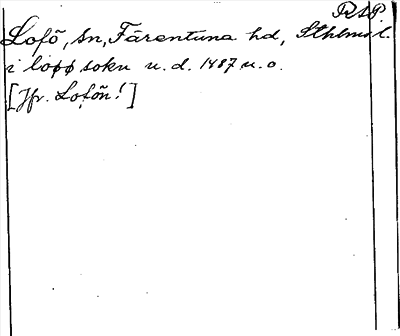 RAP.
Lofö, sn, Färentuna hd, Sthlms l.
i lopø sokn u. d. 1487 u. o.
[Jfr. Lofön!]